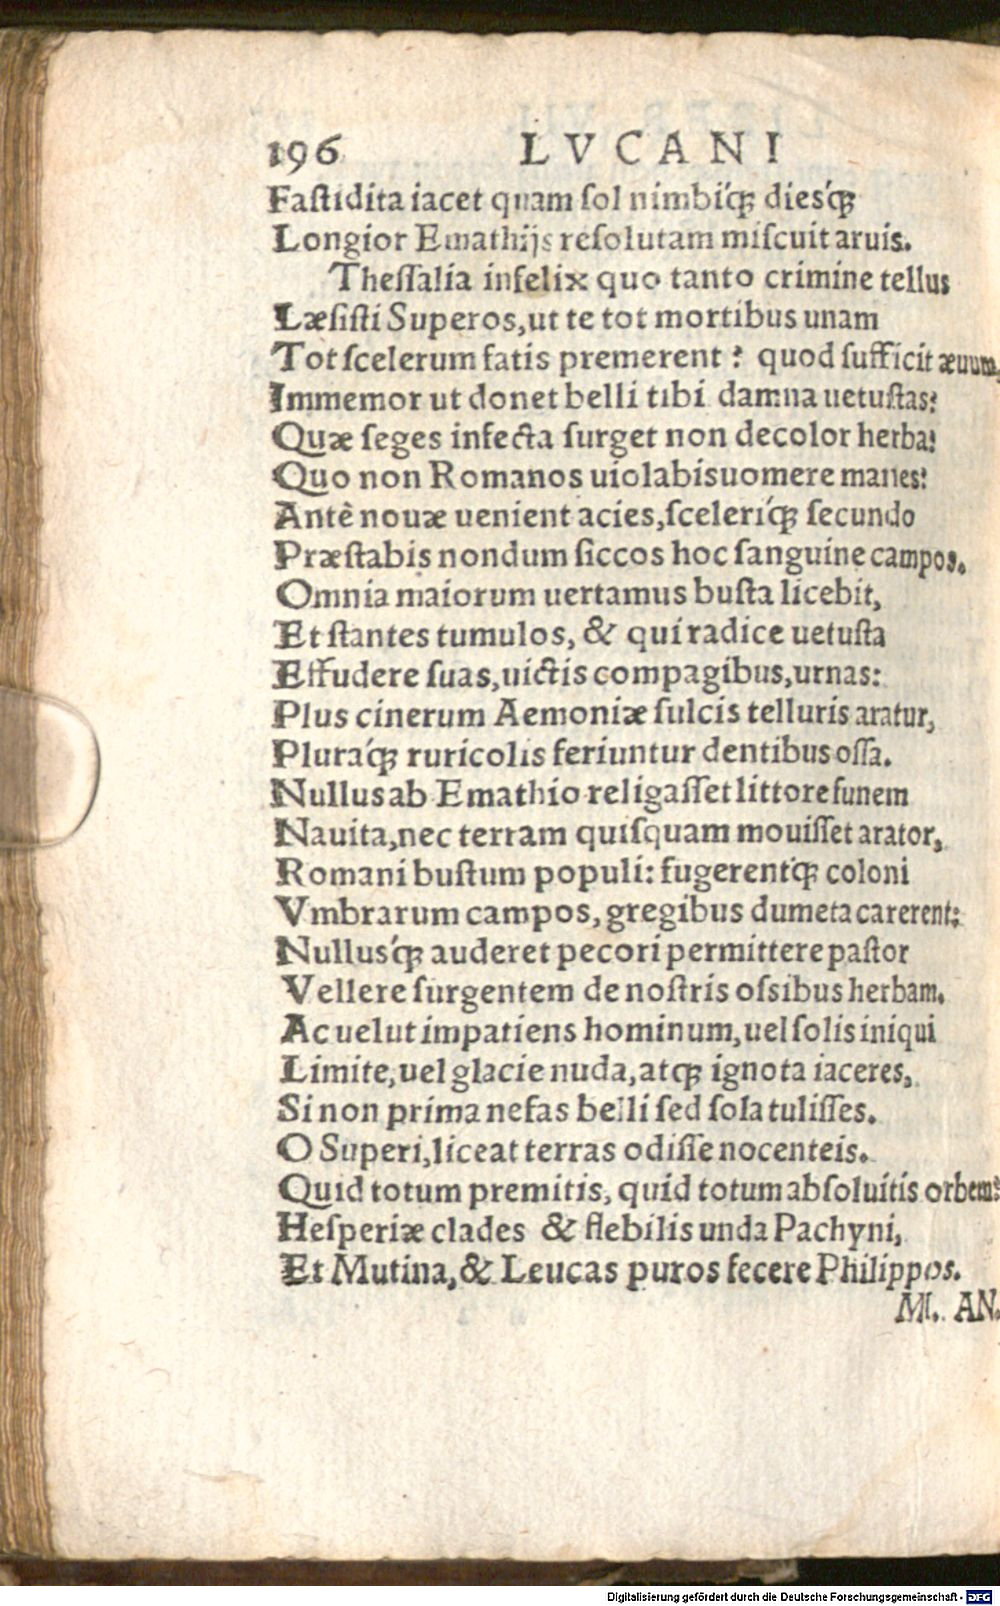 196 LVCANI
Fastidita iacet quam sol nimbíq; diesq́;
Longior Emathijs resolutam miscuit aruis.
Thessalia infelix quo tanto crimine tellus
Læsisti Superos, ut te tot mortibus unam
Tot scelerum fatis premerent? quod sufficit æuum,
Immemor ut donet belli tibi damna uetustas?
Quæ seges infecta surget non decolor herba?
Quo non Romanos uiolabis uomere manes?
Antè nouæ uenient acies, sceleríq; secundo
Præstabis nondum siccos hoc sanguine campos.
Omnia maiorum uertamus busta licebit,
Et stantes tumulos, & qui radice uetusta
Effudere suas, uictis compagibus, urnas:
Plus cinerum Aemoniæ sulcis telluris aratur,
Pluraq́; ruricolis feriuntur dentibus ossa.
Nullus ab Emathio religasset littore funem
Nauita, nec terram quisquam mouisset arator,
Romani bustum populi: fugerentq́; coloni
Vmbrarum campos, gregibus dumeta carerent:
Nullusq́; auderet pecori permittere pastor
Vellere surgentem de nostris ossibus herbam.
Ac uelut impatiens hominum, uel solis iniqui
Limite, uel glacie nuda, atq; ignota iaceres,
Si non prima nefas belli sed sola tulisses.
O Superi, liceat terras odisse nocenteis.
Quid totum premitis, quid totum absoluitis orbem?
Hesperiæ clades & flebilis unda Pachyni,
Et Mutina, & Leucas puros fecere Philippos.
M. AN.
Digitalisierung gefördert durch die Deutsche Forschungsgemeinschaft - DFG